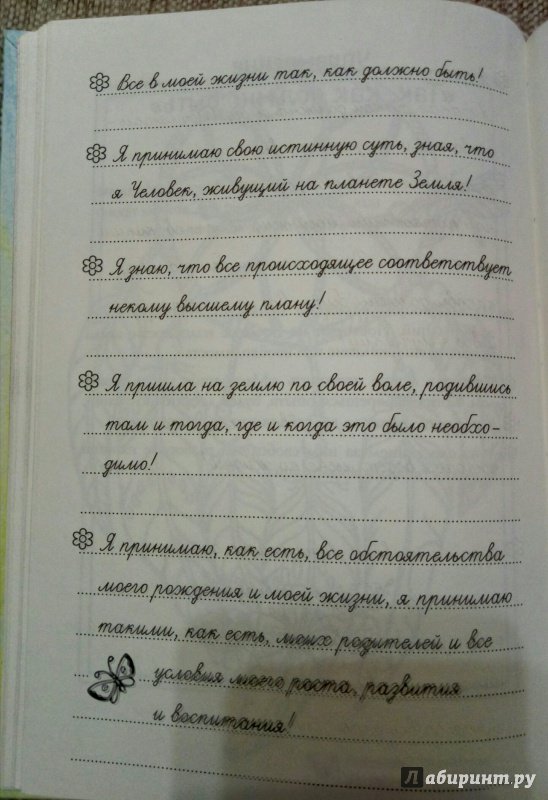 Все в моей жизни так, как должно быть!
Я принимаю свою истинную суть, зная, что
я Человек, живущий на планете Земля!
Я знаю, что все происходящее соответствует
некому высшему плану!
Я пришла на землю по своей воле, родившись
там и тогда, где и когда это было необхо-
димо!
Я принимаю, как есть, все обстоятельства
моего рождения и моей жизни, я принимаю
такими, как есть, моих родителей и все
условия моего роста, развития
и воспитания!
Лабиринт.ру